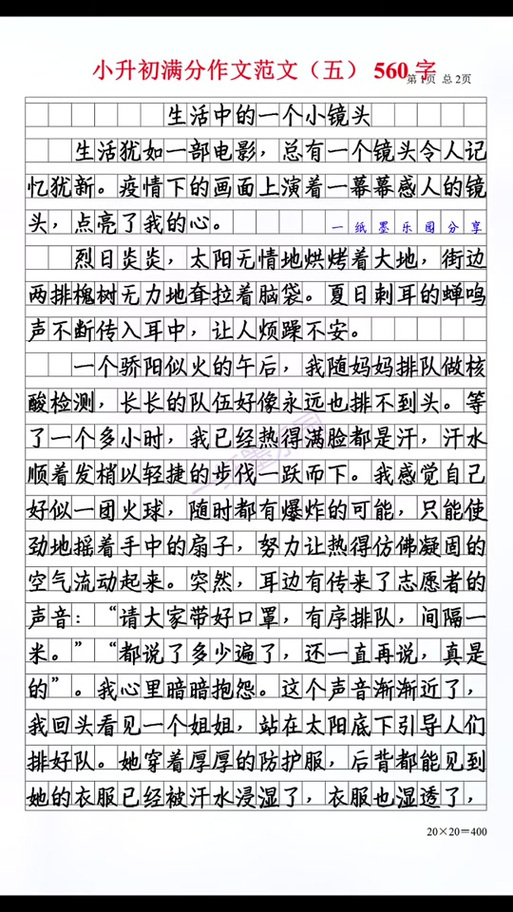 小升初满分作文范文（五）560字
第1页 总2页
生活中的一个小镜头
生活犹如一部电影，总有一个镜头令人记
忆犹新。疫情下的画面上演着一幕幕感人的镜
头，点亮了我的心。
一纸墨乐园分享
烈日炎炎，太阳无情地烘烤着大地，街边
两排槐树无力地耷拉着脑袋。夏日刺耳的蝉鸣
声不断传入耳中，让人烦躁不安。
一个骄阳似火的午后，我随妈妈排队做核
酸检测，长长的队伍好像永远也排不到头。等
了一个多小时，我已经热得满脸都是汗，汗水
顺着发梢以轻捷的步伐一跃而下。我感觉自己
好似一团火球，随时都有爆炸的可能，只能使
劲地摇着手中的扇子，努力让热得仿佛凝固的
空气流动起来。突然，耳边有传来了志愿者的
声音：“请大家带好口罩，有序排队，间隔一
米。”“都说了多少遍了，还一直再说，真是
的”。我心里暗暗抱怨。这个声音渐渐近了，
我回头看见一个姐姐，站在太阳底下引导人们
排好队。她穿着厚厚的防护服，后背都能见到
她的衣服已经被汗水浸湿了，衣服也湿透了，
20×20=400